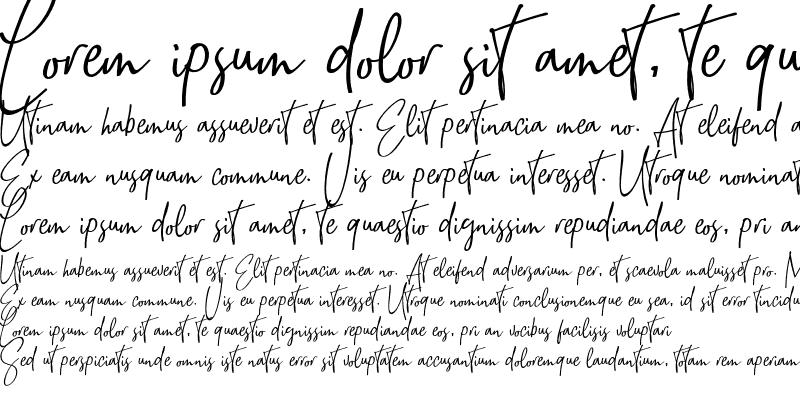 Lorem ipsum dolor sit amet, te qu
Utinam habemus assueverit et est. Elit pertinacia mea no. At eleifend a
Ex eam nusquam commune. Vis eu perpetua interesset. Utroque nominat
Lorem ipsum dolor sit amet, te quaestio dignissim repudiandae eos, pri an
Utinam habemus assueverit et est. Elit pertinacia mea no. At eleifend adversarium per, et scaevola maluisset pro. M
Ex eam nusquam commune. Vis eu perpetua interesset. Utroque nominati conclusionemque eu sea, id sit error tincidu
Lorem ipsum dolor sit amet, te quaestio dignissim repudiandae eos, pri an vocibus facilisis voluptari
Sed ut perspiciatis unde omnis iste natus error sit voluptatem accusantium doloremque laudantium, totam rem aperiam